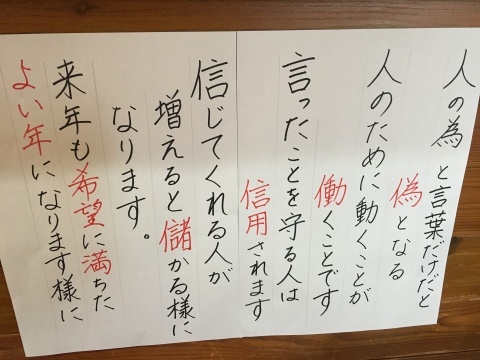 人の為 と言葉だけだと
偽となる
人のために動くことが
働くことです
言ったことを守る人は
信用されます
信じてくれる人が
増えると儲かる様に
なります。
来年も希望に満ちた
よい年になります様に